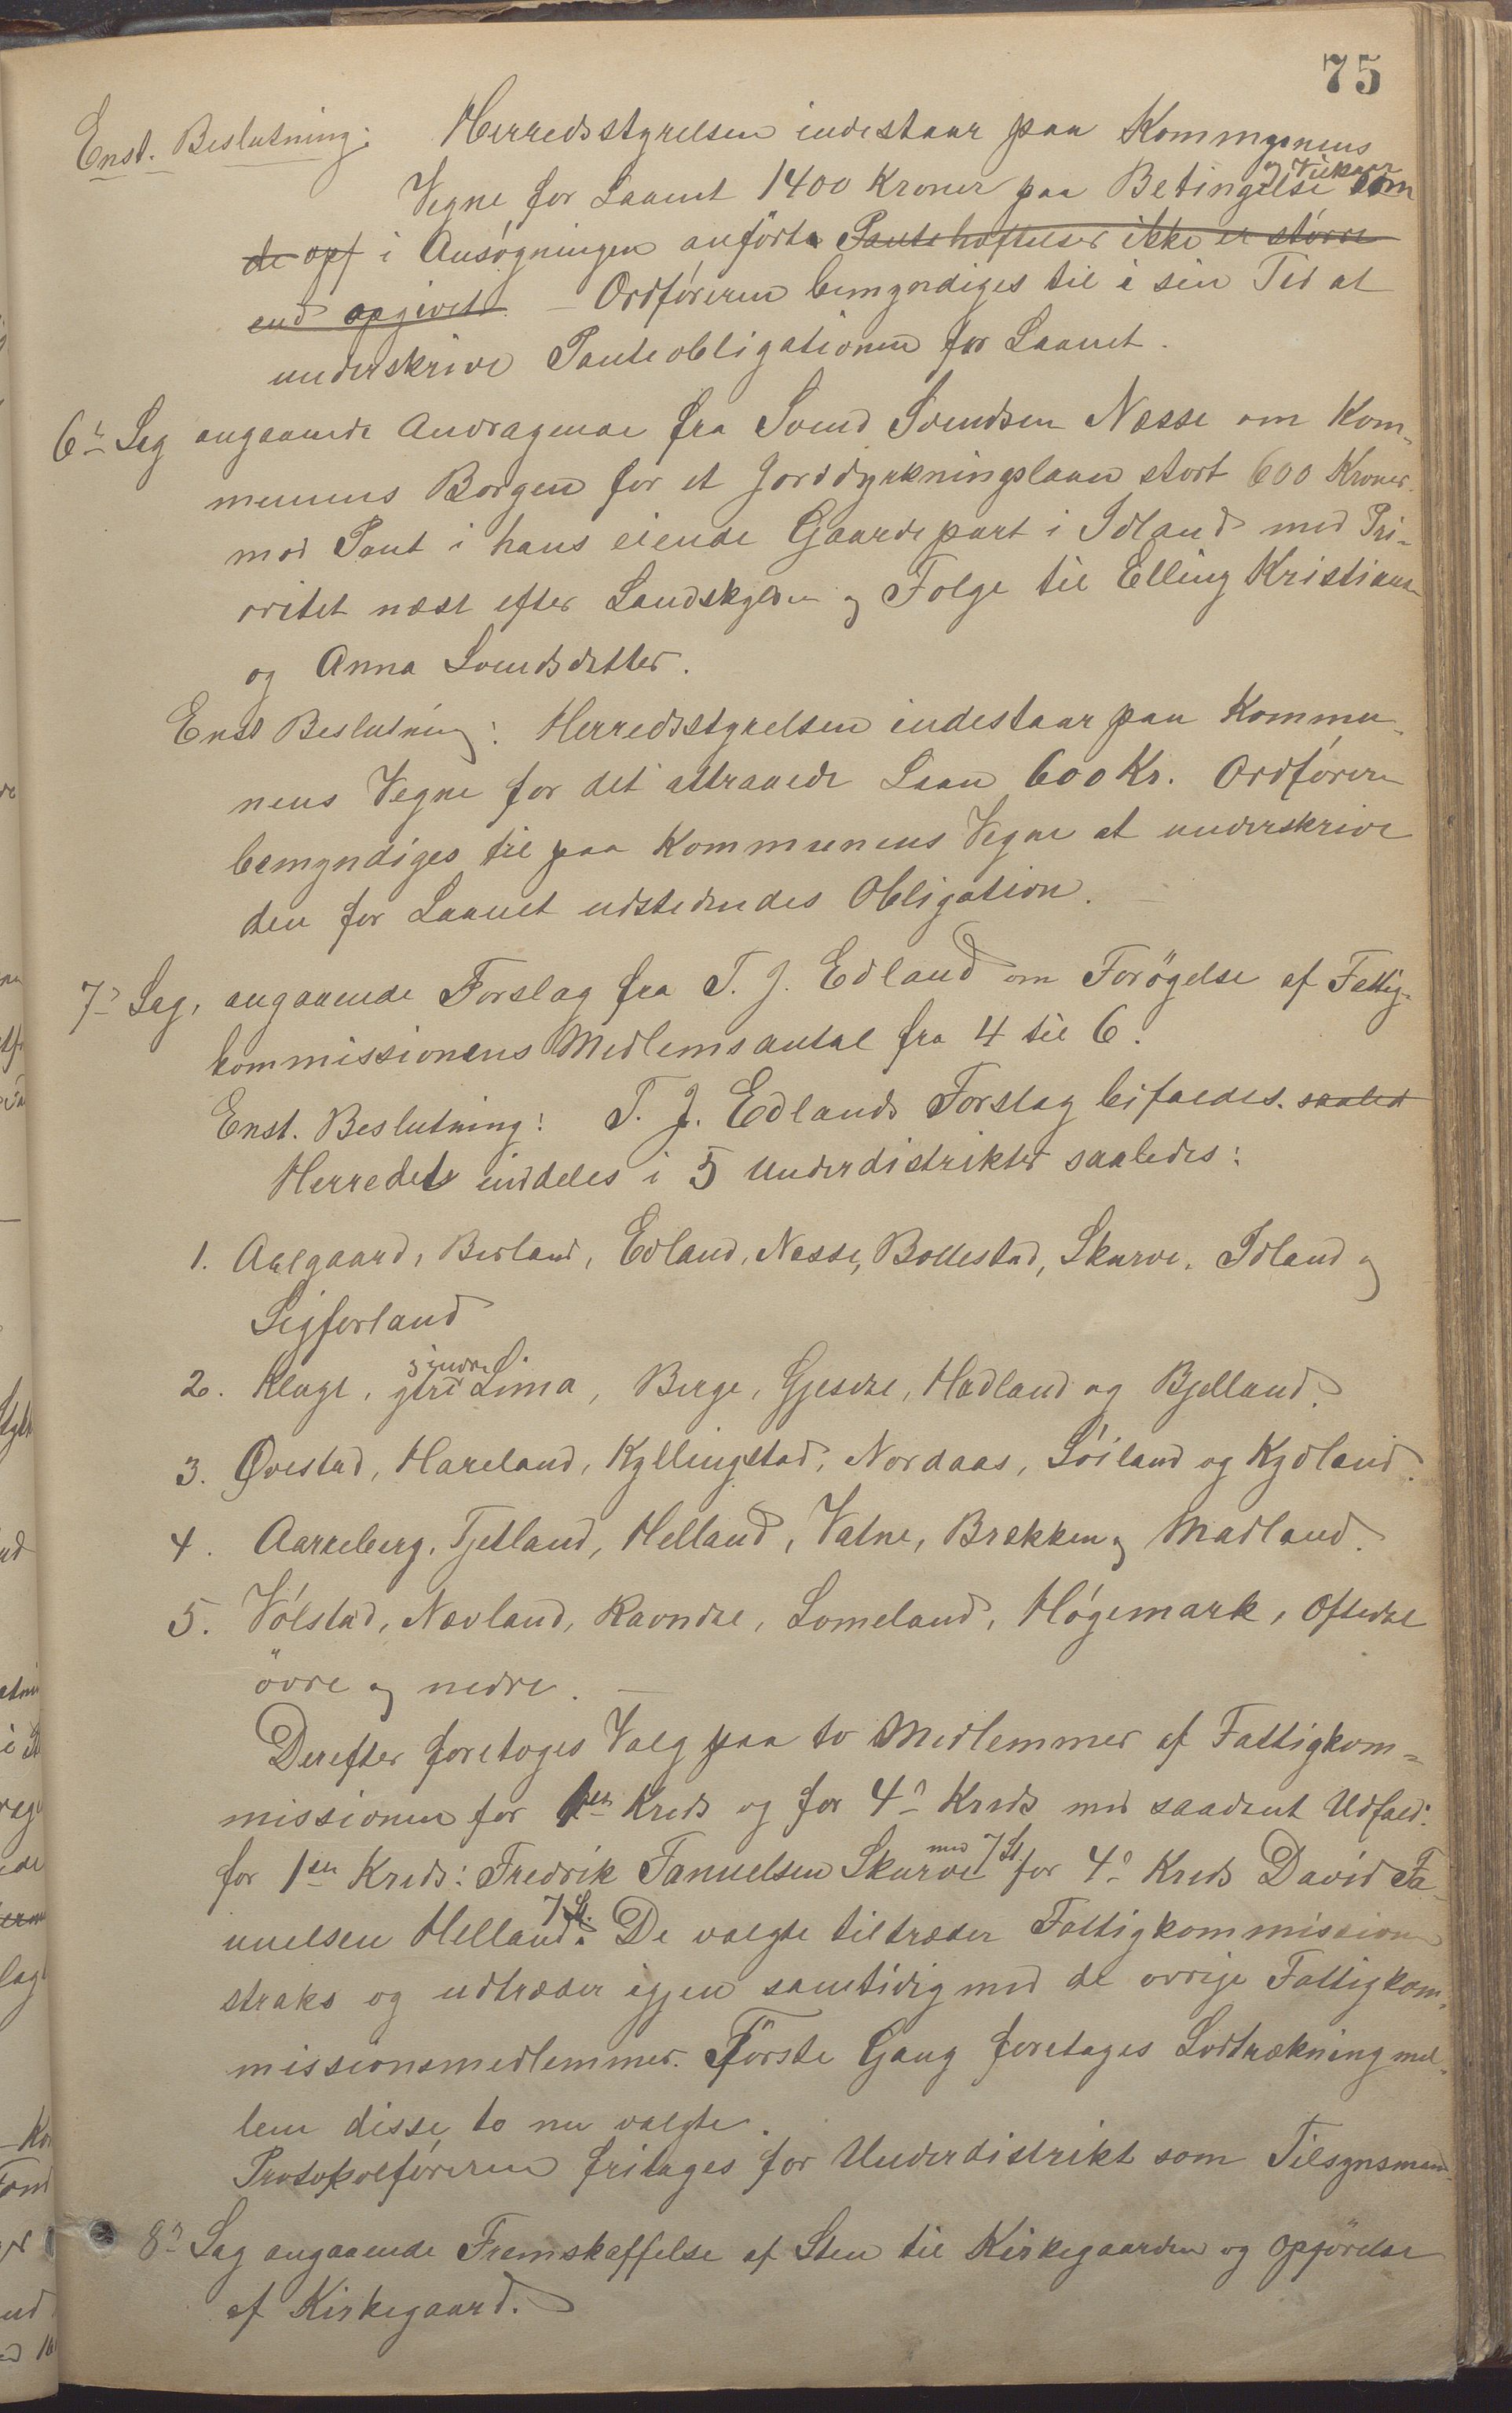 75
Enst. Beslutning: Herredsstyrelsen indestaar paa Kommunens
og Vilkaar
Vegne for Laanet 1400 Kroner paa Betingelse som
de opf i Ansøgningen anført. Pantehæftelser ikke er større
end opgivet. – Ordføreren bemyndiges til i sin Tid at
underskrive Panteobligationen for Laanet.
6te Sag angaaende Andragende fra Svend Svendsen Næsse om Kom-
munens Borgen for et Jorddyrkningslaan stort 600 Kroner
mod Pant i hans eiende Gaardepart i Idland med Pri-
oritet næst efter Landskylden og Følge til Elling Kristiansen
og Anna Svendsdatter.
Enst Beslutning: Herredsstyrelsen indestaar paa Kommu-
nens Vegne for det attraaede Laan 600 Kr. Ordføreren
bemyndiges til paa Kommunens Vegne at underskrive
den for Laanet udstedendes Obligation. –
7de Sag, angaaende Forslag fra T. J. Edland om Forögelse af Fattig-
kommissionens Medlemsantal fra 4 til 6.
Enst. Beslutning: T. J. Edlands Forslag bifaldes. saaled
Herredet inddeles i 5 Underdistrikter saaledes:
1. Aalgaard, Berland, Edland, Næsse, Bollestad, Skurve, Idland og
Sigforland
indre
2. Kluge, ytre Lima, Berge, Gjesdal, Hadland og Bjelland.
3. Øvestad, Hareland, Kyllingstad, Nordaas, Söiland og Kydland.
4. Aarreberg, Tjetland, Helland, Vatne, Brækken og Madland.
5. Vølstad, Nævland, Ravndal, Lomeland, Høgemark, Oftedal
övre og nedre. –
Derefter foretoges Valg paa to Medlemmer af Fattigkom-
missionen for 1ste Kreds og for 4de Kreds med saadant Udfald:
for 1ste Kreds: Fredrik Tanuelsen Skurve med 7 St. for 4de Kreds David Ta-
nuelsen Helland 7 St. De valgte tiltræder Fattigkommissionen
straks og udtræder igjen samtidig med de øvrige Fattigkom-
missionsmedlemmer. Förste Gang foretages Lodtrækning mel-
lem disse to nu valgte.
Protokolføreren fritages for Underdistrikt som Tilsynsmand
8de Sag angaaende Fremskaffelse af Sten til Kirkegaarden og Opgörelse
af Kirkegaard.